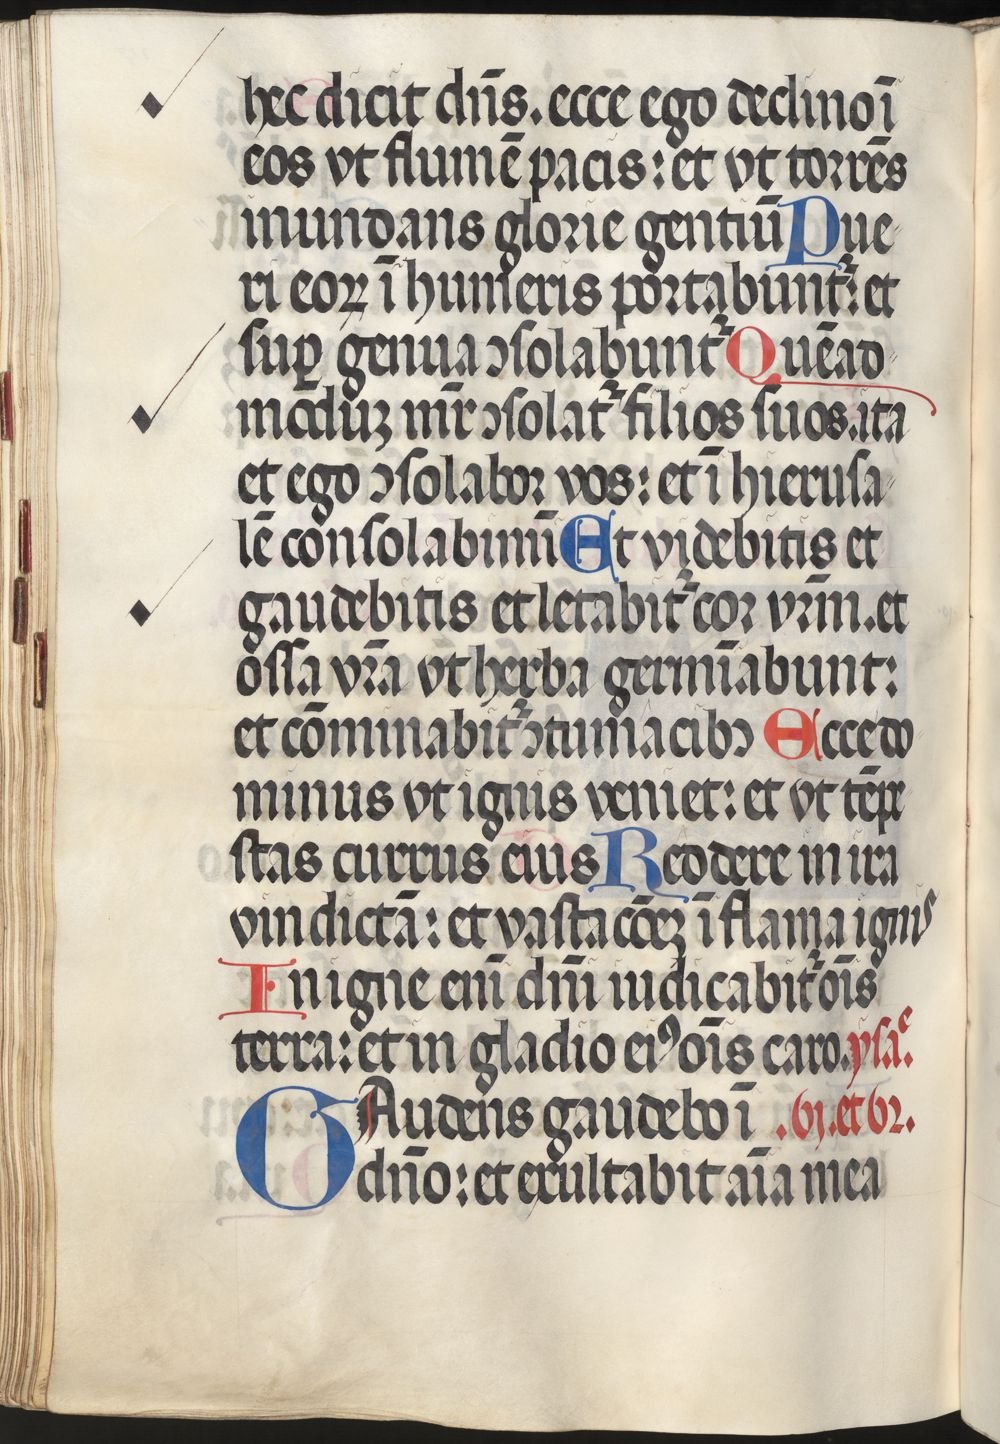 hec dicit dn̄s. ecce ego declino ī
eos vt flumē pacis: et vt torrēs
inundans glorie gentiū Pue
ri eoꝝ ī humeris portabunt᷑: et
suꝑ genua ꝯsolabunt᷑ Quēad
moduʒ mr̄ ꝯsolat᷑ filios suos. ita
et ego ꝯsolabor vos: et ī hierusa
lē consolabimī Et videbitis et
gaudebitis et letabit᷑ cor vr̄m. et
ossa vr̄a vt herba germīabunt:
et cōminabit᷑ ꝯtumacibꝫ Ecce do
minus vt ignis veniet: et vt tēpe
stas currus eius Reddere in ira
vindictā: et vastacōeꝫ ī flama ignis
In igne enī dn̄i iudicabit᷑ oīs
terra: et in gladio eiꝰ oīs caro. ysaͤ.
GAudens gaudebo ī .61. et 62.
dn̄o: et exultabit aīa mea